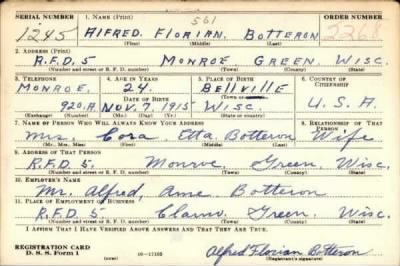 SERIAL NUMBER 1. NAME (Print) ORDER NUMBER
561
1245 ALFRED FLORIAN BOTTERON 2268
(First) (Middle) (Last)
2. ADDRESS (Print)
R.F.D. 5 MONROE GREEN WISC.
(Number and street or R. F. D. number) (Town) (County) (State)
3. TELEPHONE 4. AGE IN YEARS 5. PLACE OF BIRTH 6. COUNTRY OF CITIZENSHIP
MONROE 24 BELLVILLE
DATE OF BIRTH (Town or county)
920.R. NOV. 7, 1915 WISC. U.S.A.
(Exchange) (Number) (Mo.) (Day) (Yr.) (State or country)
7. NAME OF PERSON WHO WILL ALWAYS KNOW YOUR ADDRESS 8. RELATIONSHIP OF THAT PERSON
Mrs. Cora Etta Botteron Wife
(Mr., Mrs., Miss) (First) (Middle) (Last)
9. ADDRESS OF THAT PERSON
R.F.D. 5 Monroe Green Wisc.
(Number and street or R. F. D. number) (Town) (County) (State)
10. EMPLOYER'S NAME
Mr. Alfred, Botteron
11. PLACE OF EMPLOYMENT OR BUSINESS
R.F.D. 5 Green Wisc.
(Number and street or R. F. D. number) (Town) (County) (State)
I AFFIRM THAT I HAVE VERIFIED ABOVE ANSWERS AND THAT THEY ARE TRUE.
REGISTRATION CARD
D. S. S. Form 1 16-17105 Alfred Florian Botteron
(Registrant's signature)